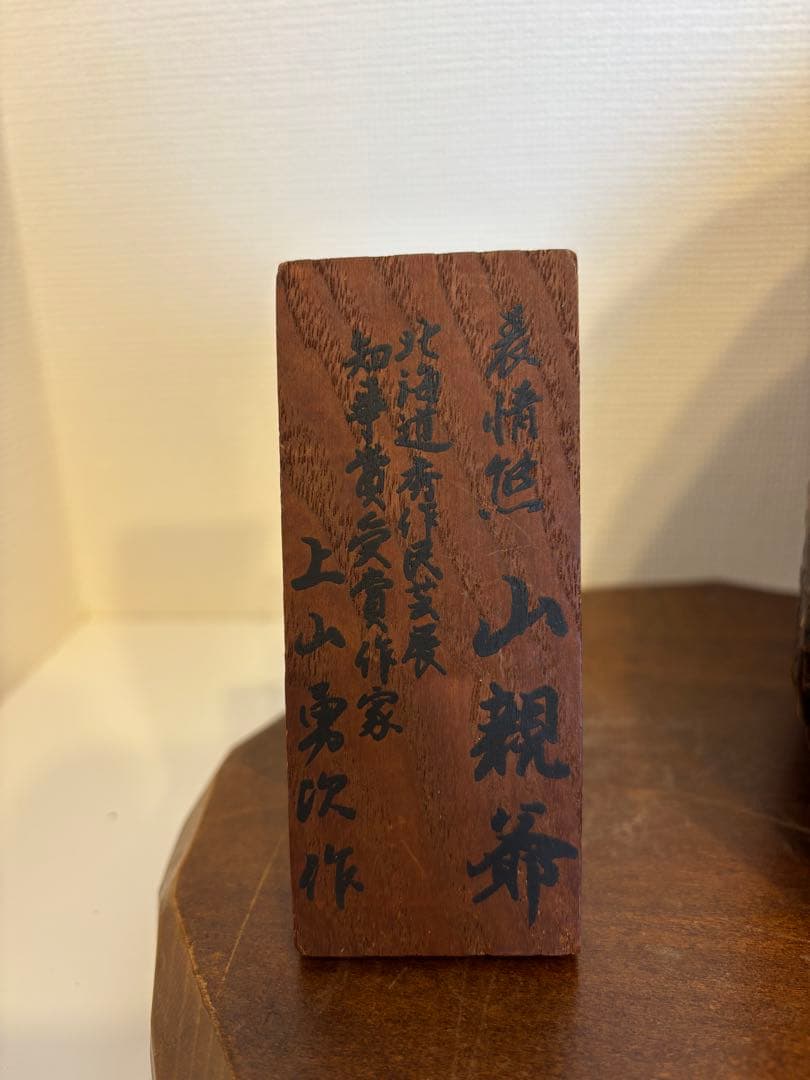 表情熊 山親爺
北海道秀作民芸展
知事賞受賞作家
上山勇次作